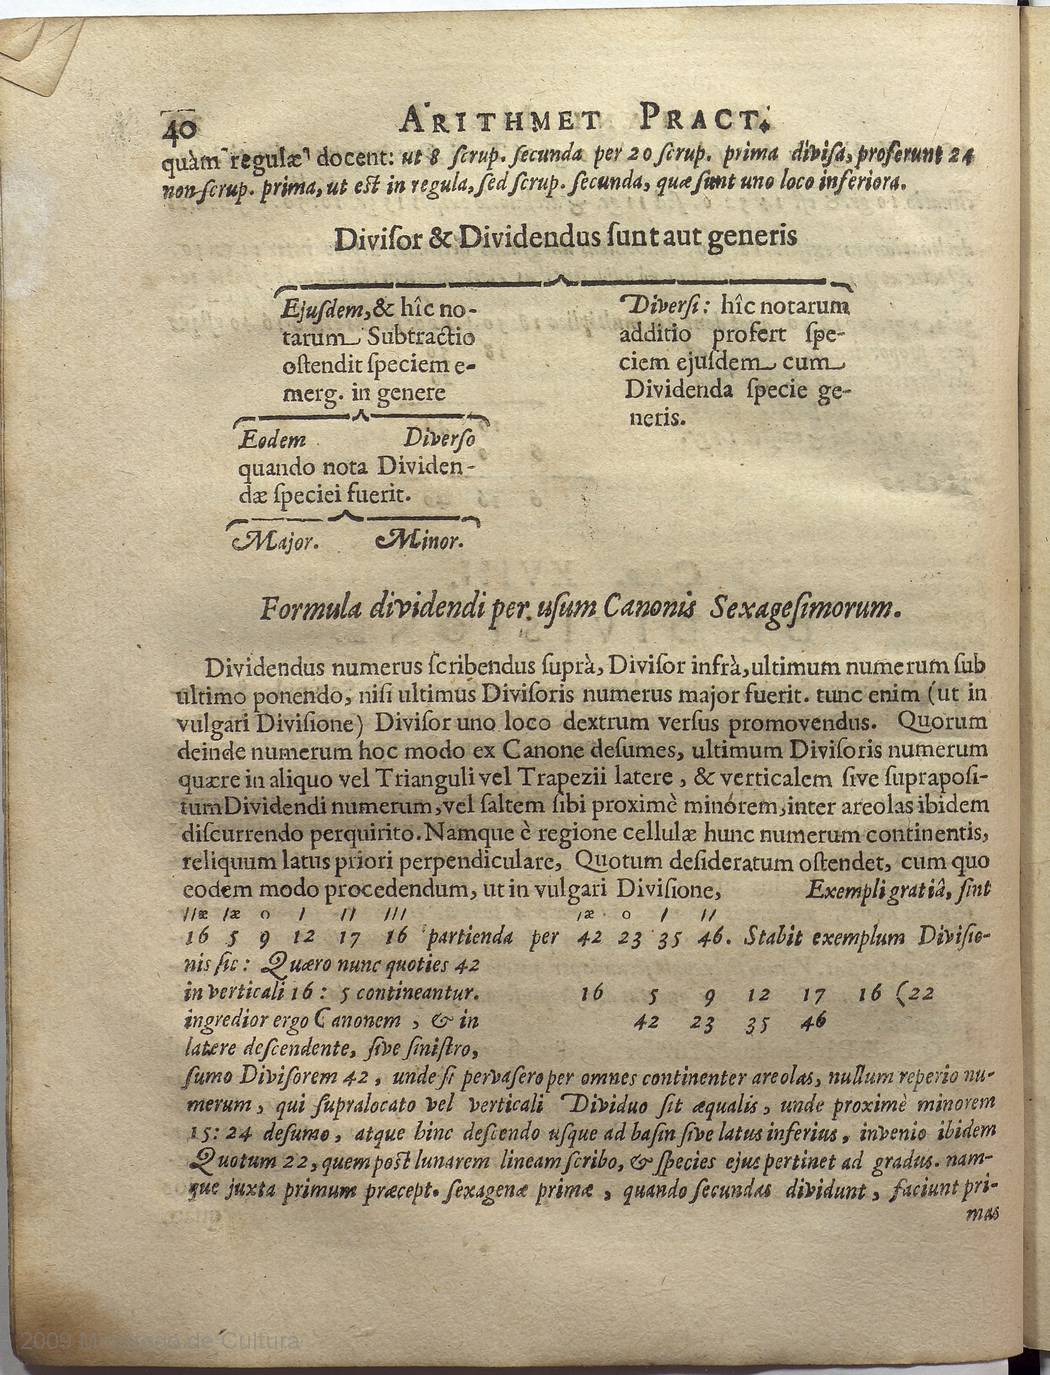 40 ARITHMET PRACT.
quàm regulæ docent: ut 8 ſcrup. ſecunda per 20 ſcrup. prima diviſa, proferunt 24
non ſcrup. prima, ut eſt in regula, ſed ſcrup. ſecunda, quæ ſunt uno loco inferiora.
Diviſor & Dividendus ſunt aut generis
Ejuſdem, & hîc no-
tarum Subtractio
oſtendit ſpeciem e-
merg. in genere
Diverſi: hîc notarum
additio profert ſpe-
ciem ejuſdem cum
Dividenda ſpecie ge-
neris.
Eodem Diverſo
quando nota Dividen-
dæ ſpeciei fuerit.
Major. Minor.
Formula dividendi per uſum Canonis Sexageſimorum.
Dividendus numerus ſcribendus ſuprà, Diviſor infrà, ultimum numerum ſub
ultimo ponendo, niſi ultimus Diviſoris numerus major fuerit. tunc enim (ut in
vulgari Diviſione) Diviſor uno loco dextrum verſus promovendus. Quorum
deinde numerum hoc modo ex Canone deſumes, ultimum Diviſoris numerum
quære in aliquo vel Trianguli vel Trapezii latere, & verticalem ſive ſuprapoſi-
tum Dividendi numerum, vel ſaltem ſibi proximè minórem, inter areolas ibidem
diſcurrendo perquirito. Namque è regione cellulæ hunc numerum continentis,
reliquum latus priori perpendiculare, Quotum deſideratum oſtendet, cum quo
eodem modo procedendum, ut in vulgari Diviſione, Exempli gratiâ, ſint
//æ /æ 0 / // /// /æ 0 / //
16 5 9 12 17 16 partienda per 42 23 35 46. Stabit exemplum Diviſio-
nis ſic: Quæro nunc quoties 42
in verticali 16: 5 contineantur.
16 5 9 12 17 16 (22
ingredior ergo Canonem, & in
42 23 35 46
latere deſcendente, ſive ſiniſtro,
ſumo Diviſorem 42, unde ſi pervaſero per omnes continenter areolas, nullum reperio nu-
merum, qui ſupralocato vel verticali Dividuo ſit æqualis, unde proximè minorem
15: 24 deſumo, atque hinc deſcendo uſque ad baſin ſive latus inferius, invenio ibidem
Quotum 22, quem poſt lunarem lineam ſcribo, & ſpecies ejus pertinet ad gradus. nam-
que juxta primum præcept. ſexagenæ primæ, quando ſecundas dividunt, faciunt pri-
mas